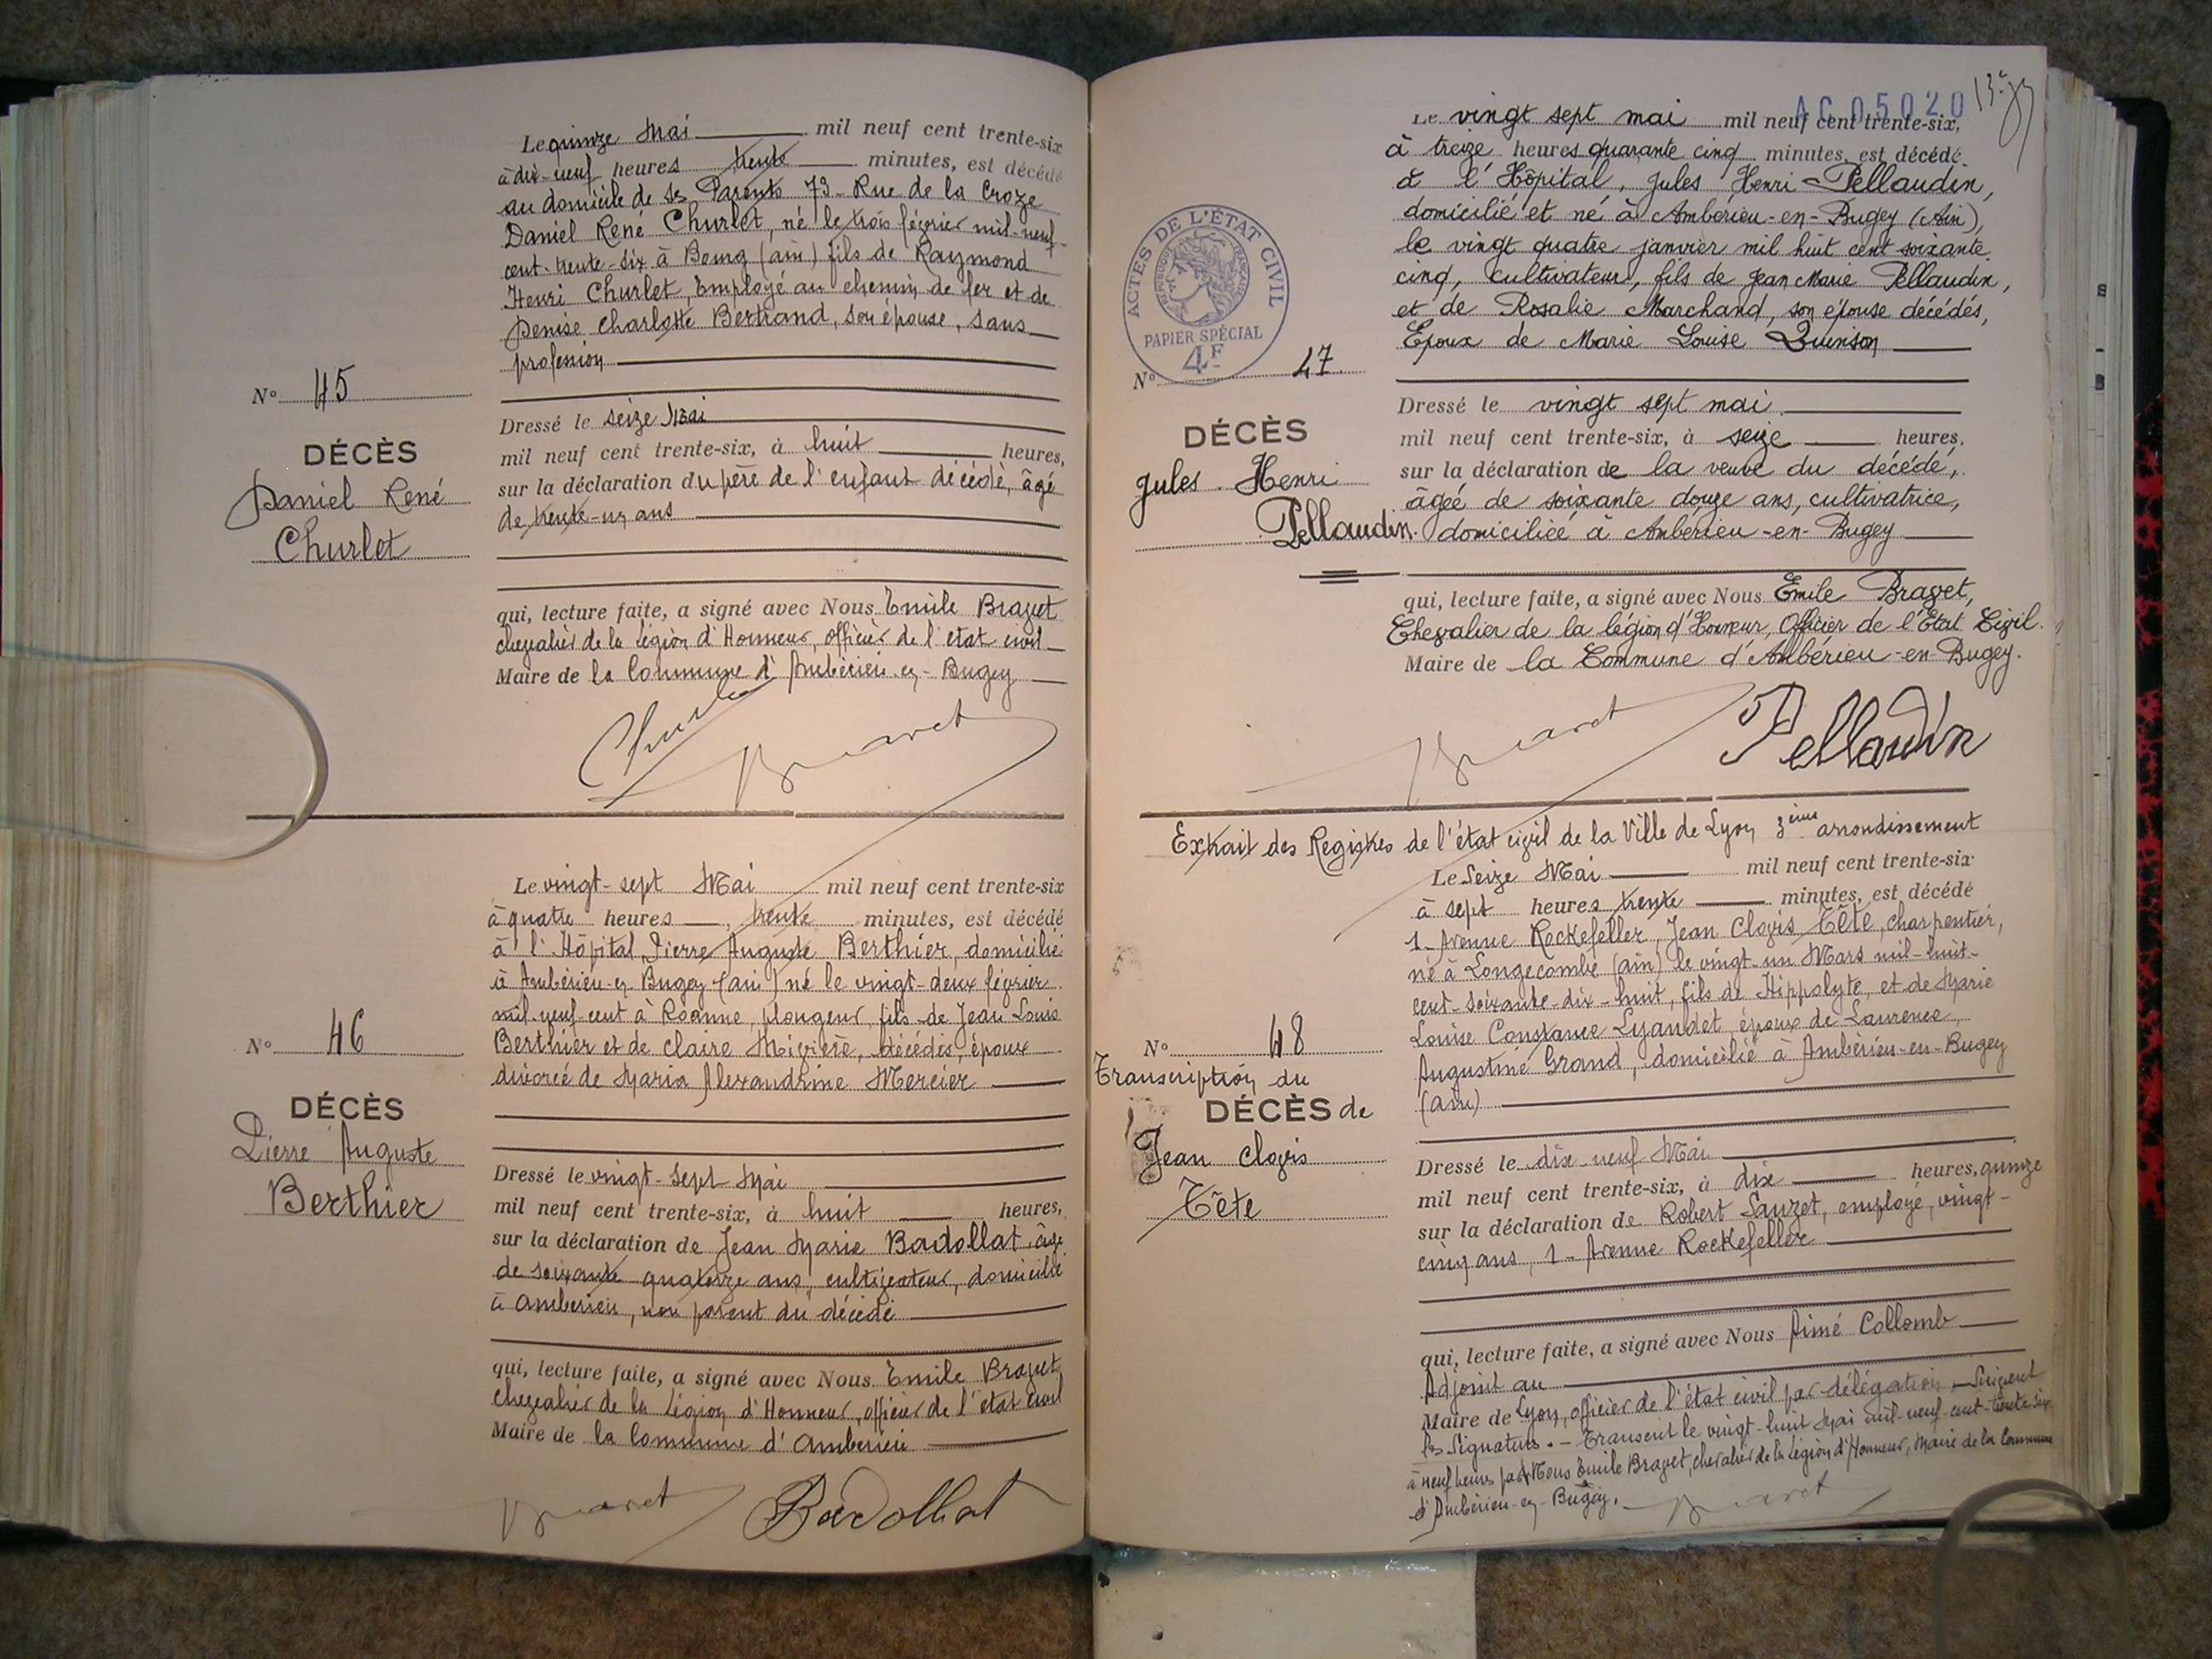 Le quinze Mai mil neuf cent trente-six
à dix-neuf heures trente minutes, est décédé
au domicile de ses Parents 73 - Rue de la Croze
Daniel René Churlet, né le trois février mil-neuf-
cent-trente-six à Bourg (ain) fils de Raymond
Henri Churlet, Employé au chemin de fer et de
Denise Charlotte Bertrand, son épouse, sans
profession
N° 45
DÉCÈS
Daniel René
Churlet
Dressé le seize Mai
mil neuf cent trente-six, à huit heures,
sur la déclaration du père de l'enfant décédé, âgé
de trente-un ans
qui, lecture faite, a signé avec Nous Emile Bravet
chevalier de la Légion d'Honneur, officier de l'état civil
Maire de la Commune d'Ambérieu-en-Bugey
Churlet
Bravet
Le vingt-sept Mai mil neuf cent trente-six
à quatre heures, trente minutes, est décédé
à l'Hôpital, Pierre Auguste Berthier, domicilié
à Ambérieu-en Bugey (ain) né le vingt-deux février
mil-neuf-cent à Roanne, plongeur, fils de Jean Louis
Berthier et de Claire Mivière, décédés, époux
divorcé de Maria Alexandrine Mercier
N° 46
DÉCÈS
Pierre Auguste
Berthier
Dressé le vingt-sept Mai
mil neuf cent trente-six, à huit heures,
sur la déclaration de Jean Marie Badollat, âgé
de soixante quatorze ans, cultivateur, domicilié
à Amberieu, non parent du décédé
qui, lecture faite, a signé avec Nous Emile Bravet
chevalier de la Légion d'Honneur, officier de l'état civil
Maire de la Commune d'Amberieu
Bravet
Badollat
AC 05020
Le vingt sept mai mil neuf cent trente-six,
à treize heures quarante cinq minutes, est décédé
à l'Hôpital, Jules Henri Pellaudin,
domicilié et né à Ambérieu-en-Bugey (Ain),
le vingt quatre janvier mil huit cent soixante
cinq, cultivateur, fils de Jean Marie Pellaudin,
et de Rosalie Marchand, son épouse décédés,
Epoux de Marie Louise Quinson
ACTES DE L'ÉTAT CIVIL
RÉPUBLIQUE FRANÇAISE
PAPIER SPÉCIAL
4F
N° 47.
DÉCÈS
Jules Henri
Pellaudin.
Dressé le vingt sept mai
mil neuf cent trente-six, à seize heures,
sur la déclaration de la veuve du décédé,
âgée de soixante douze ans, cultivatrice,
domiciliée à Ambérieu-en-Bugey
qui, lecture faite, a signé avec Nous Emile Bravet,
Chevalier de la légion d'Honneur, Officier de l'Etat Civil.
Maire de la Commune d'Ambérieu-en-Bugey.
Bravet
Pellaudin
Extrait des Registres de l'état civil de la Ville de Lyon 3ème arrondissement
Le Seize Mai mil neuf cent trente-six
à sept heures trente minutes, est décédé
1 - Avenue Rockefeller, Jean Clovis Tête, charpentier,
né à Longecombe (ain) le vingt-un Mars mil-huit-
cent-soixante-dix-huit, fils de Hippolyte, et de Marie
Louise Constance Lyaudet, époux de Laurence
Augustine Grand, domicilié à Ambérieu-en-Bugey
(ain)
N° 48
Transcription du
DÉCÈS de
Jean Clovis
Tête
Dressé le dix-neuf Mai
mil neuf cent trente-six, à dix heures, quinze
sur la déclaration de Robert Sauzet, employé, vingt-
cinq ans, 1 - Avenue Rockefeller
qui, lecture faite, a signé avec Nous Aimé Collomb
Adjoint au
Maire de Lyon, officier de l'état civil par délégation, - Suivent
les Signatures. - Transcrit le vingt-huit Mai mil-neuf-cent-trente-six
à neuf heures par Nous Emile Bravet, chevalier de la Légion d'Honneur, Maire de la Commune
d'Ambérieu-en-Bugey.
Bravet